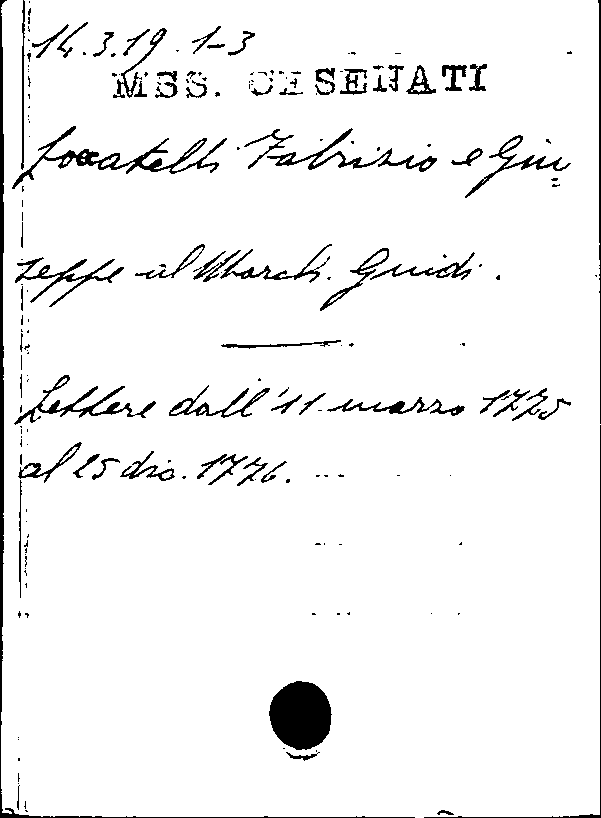 14.3.19.1-3
MSS. CESENATI
Locatelli Fabrizio e Giu=
seppe al March. Guidi.
Lettere dall'11 marzo 1775
al 25 dic. 1776.